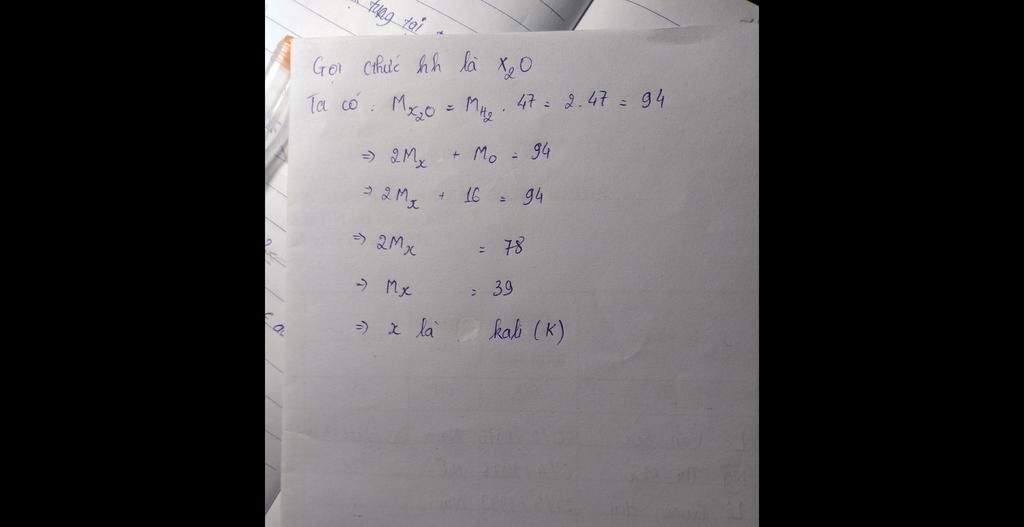 tụng tại
Gọi cthức hh là X₂O
Ta có : M_X₂O = M_H₂ . 47 = 2.47 = 94
=> 2M_X + M_O = 94
=> 2M_X + 16 = 94
=> 2M_X = 78
=> M_X = 39
=> X là kali (K)